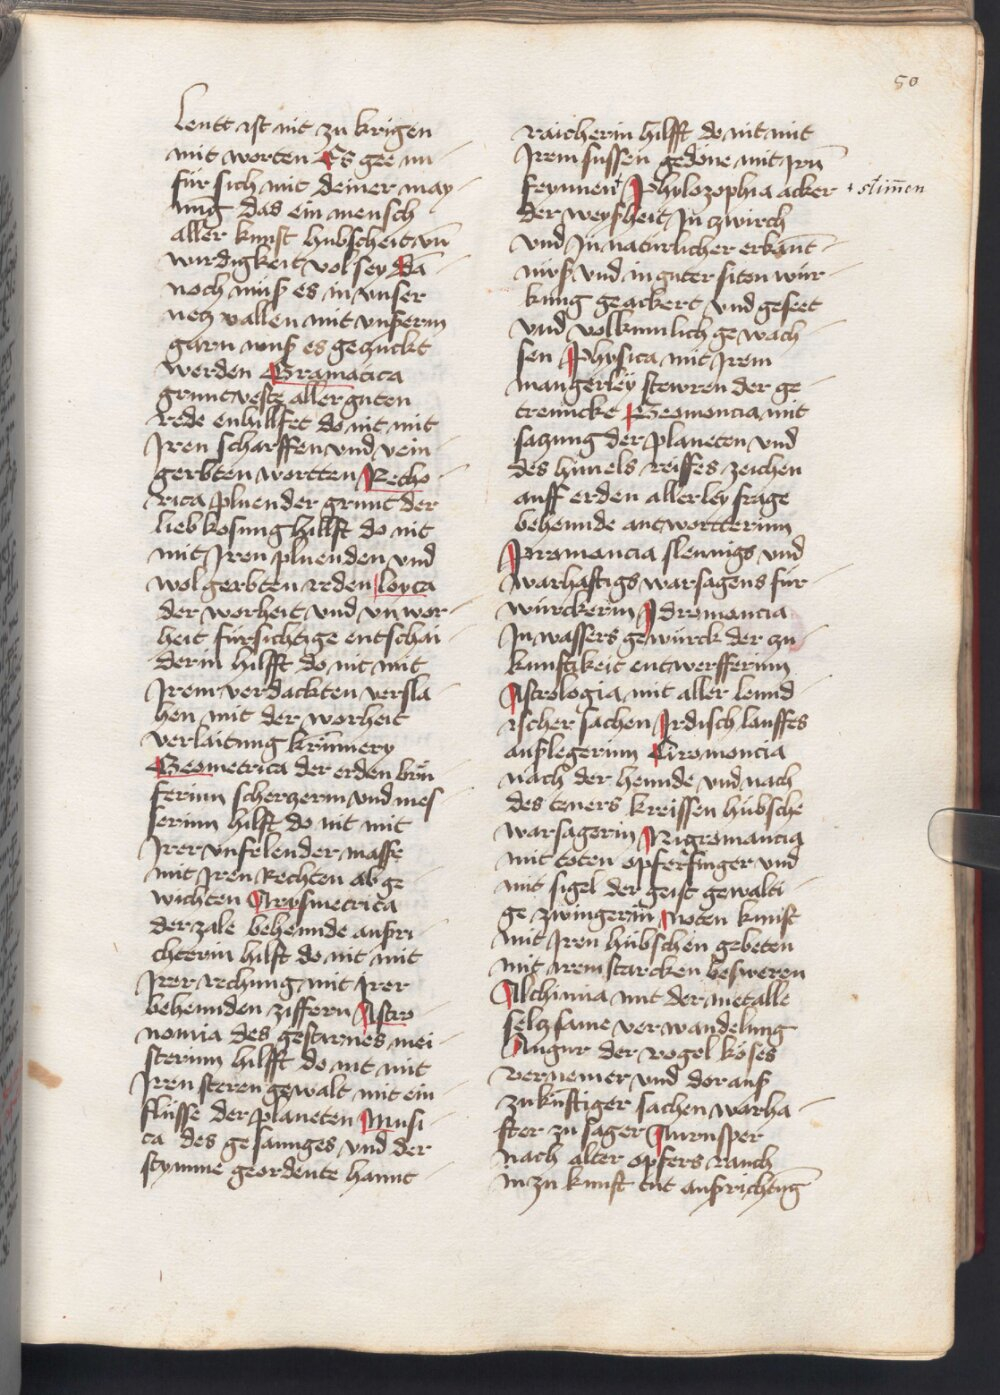 50
lentt ist nit zu krigen
mit worten Es gee nu
für sich mit deiner may
nung das ein mensch
aller kunst hubscheit vn̄
wirdigkeit vol sey Dā
noch müß es in vnser
netz vallen mit vnßerm
garn muß es gezuckt
werden Gramatica
gruntveste aller guten
rede enhillfet do nit mit
Iren scharffen und vein
gerbten wortten Retho
rica pluender grunt der
lieb kosung hillft do nit
mit Iren pluenden vnd
wol gerbten reden loyca
der worheit vnd vn wor
heit fürsichtige entschai
derin hilfft do nit mit
Irem verdackten versla
hen mit der worheit
verlaitung krümery
Geometrica der erden brü
ferinn scherzerin und mes
serinn hilft do nit mit
Irer vnfelender masse
mit Iren Rechten ab ge
wichten Arysmetrica
der zale behennde außri
chterin hilft do nit mit
Irer rechung mit Irer
behenniden ziffern Astro
nomia des gestarnes mei
sterinn hilfft do nit mit
Iren steren gewalt mit ein
flüsse der planeten Musi
ca des gesannges vnd der
stymme geordente hannt
raicherin hilfft do nit mit
Irem süssen gedöne mit irn̄
feynnen + Phylozophia acker + stim̄en
der weyßheit In zwirch
vnd In naturlicher erkant
nüß vnd in guter siten wür
kung geackert vnd geseet
vnd volkumlich gewach
sen Physica mit Irem
mangerley stewren der ge
trenncke Geomoncia mit
sazung der planeten vnd
des himels reiffes zeichen
auff erden allerley frage
behennde antwortterinn
Piromancia slennigs vnd
warhaftigs warsagens für
würckerin Idromancia
In wassers gewürck der zu
kunftikeit entwerfferinn
Astrologia mit aller lennd
ischer sachen Irdisch lauffes
außlegerinn Ciromoncia
nach der hennde vnd nach
des teners kreissen hübsche
warsagerin Nigromancia
mit toten opferfinger vnd
mit sigel der geist gewalti
ge zwingerin Noten kunst
mit Iren hübschen gebeten
mit irem starcken besweren
Alchimia mit der metalle
seltzsame verwandelung
Augur der vogel köses
vernemer vnd dorauß
zukünftiger sachen warha
fter zu sager Aurusper
nach alter opfers rauch
in zu kunft tut außrichtūg